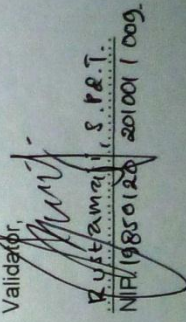 Validator,
Rustamaji, S.Pd.T.
NIP. 19850120 201001 1 009